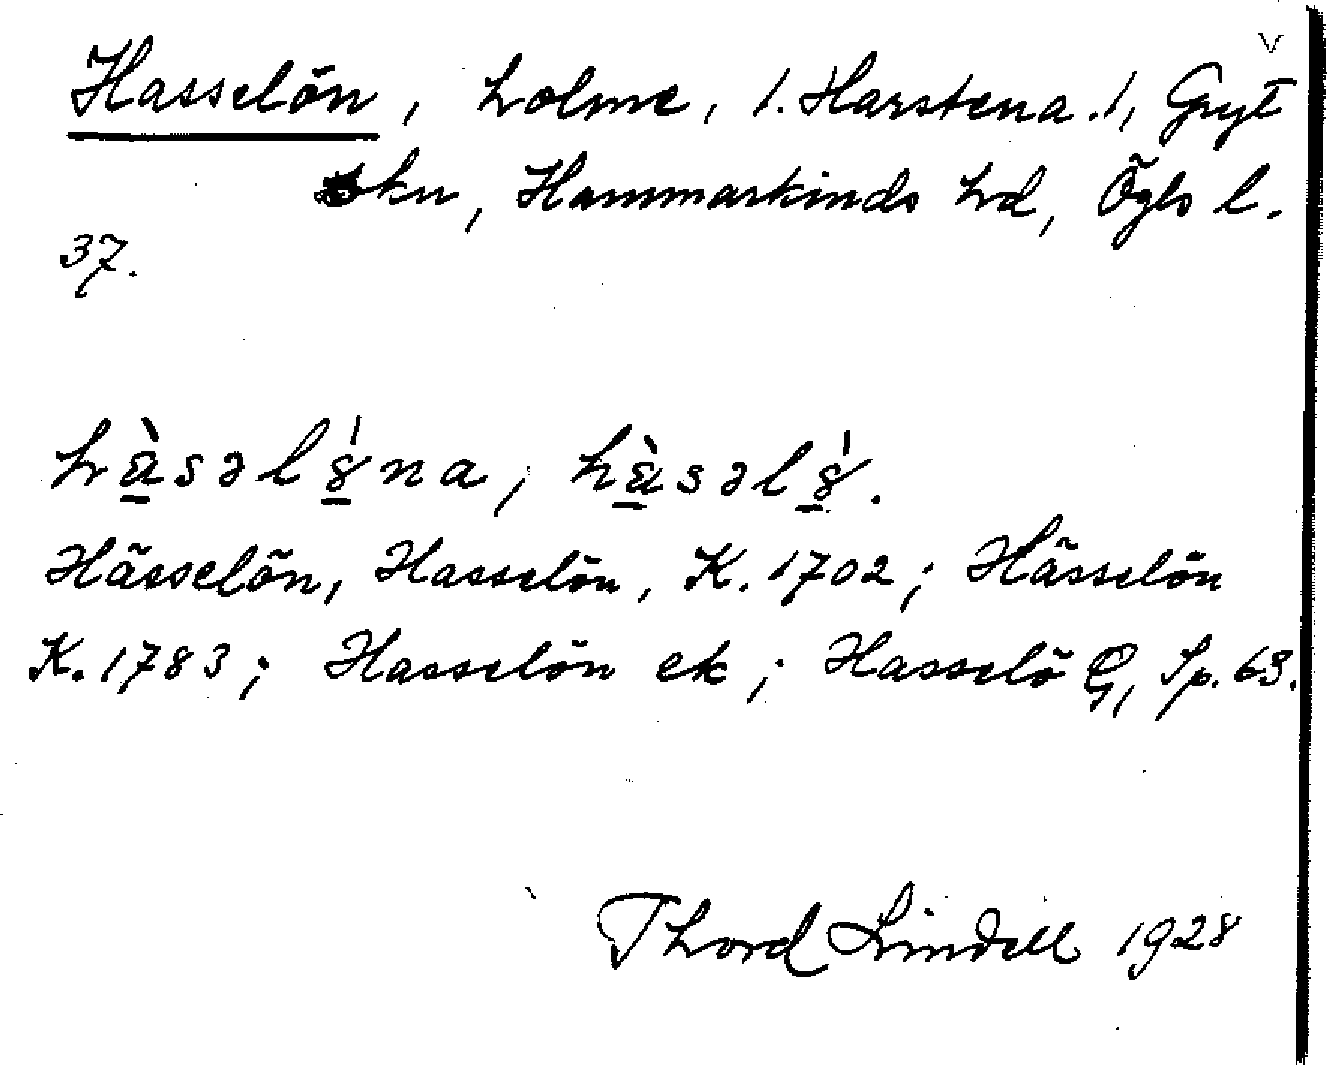 Hasselön, holme, /. Harstena ./, Gryt
skn, Hammarkinds hd, Ögls l.
37.
hàsəlø̀na, hàsəlø̀.
Hässelön, Hasselön, K. 1702; Hässelön
K. 1783; Hasselön ek; Hasselö G, Sp. 63.
Thord Lindell 1928